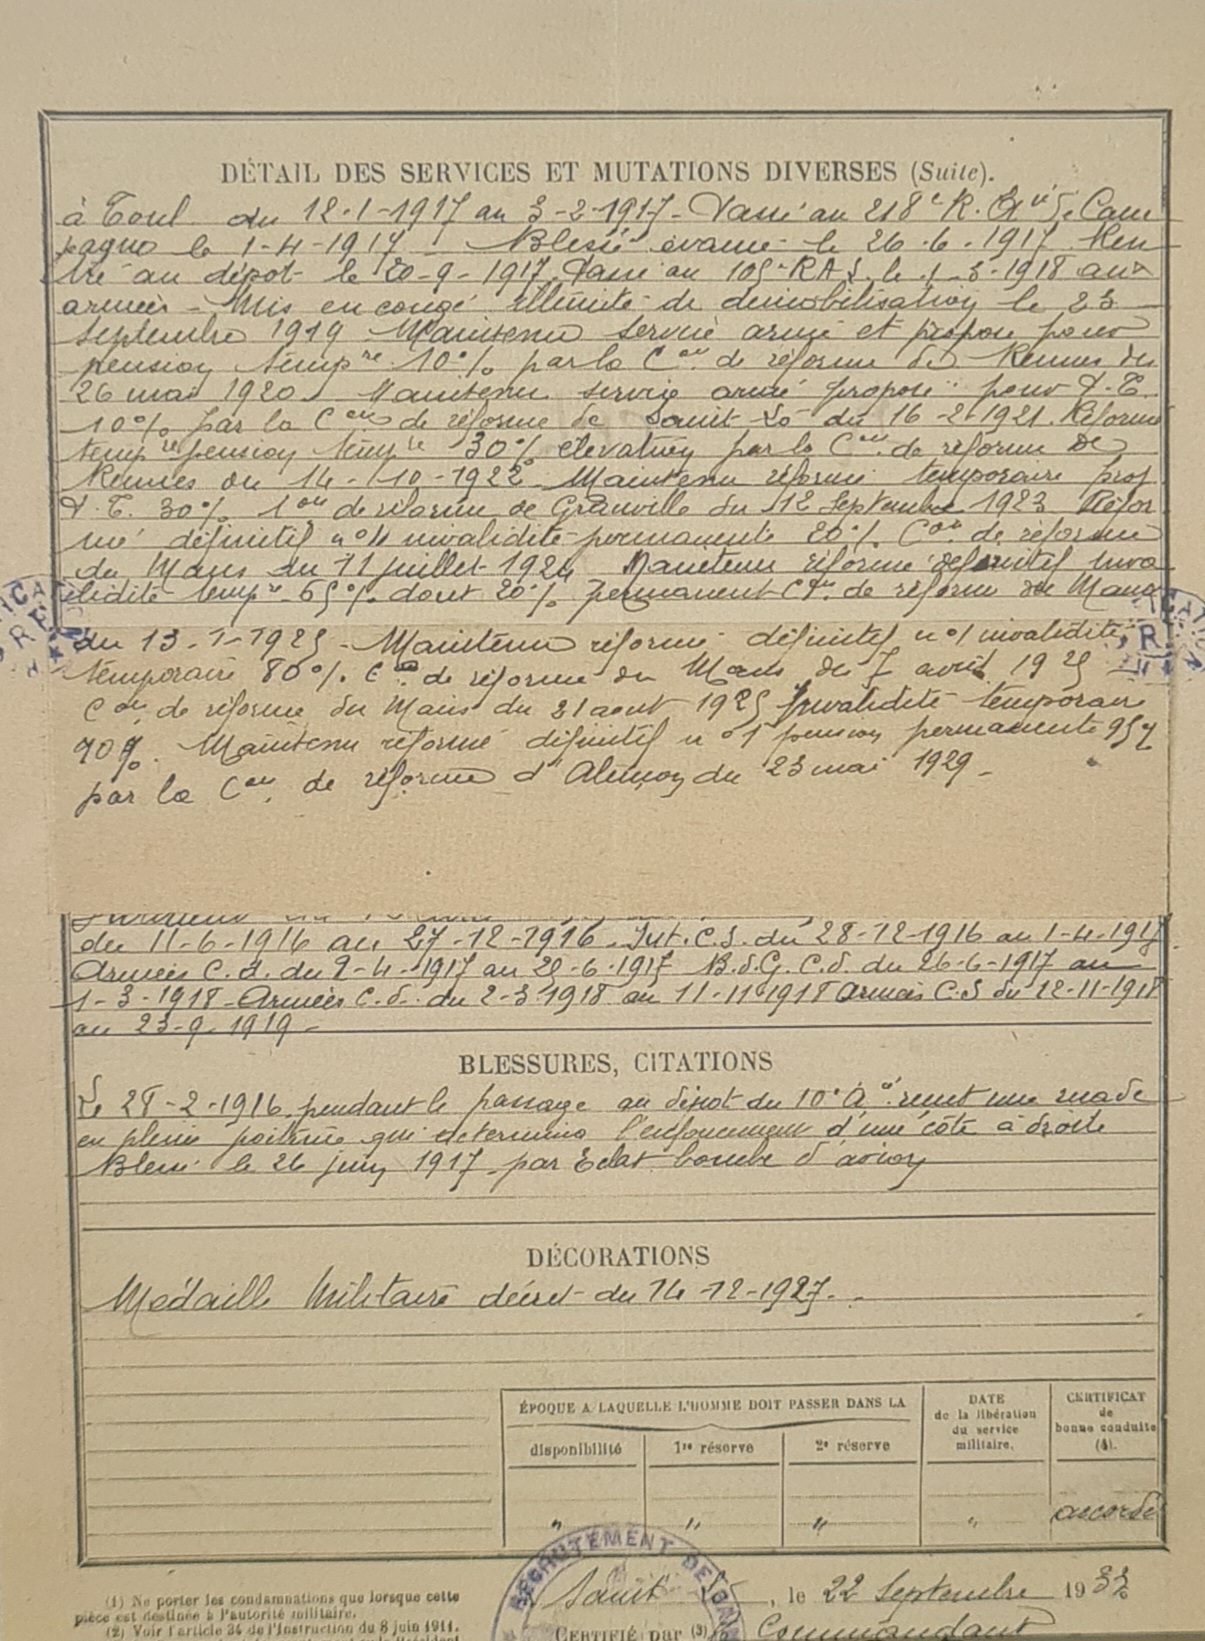 DÉTAIL DES SERVICES ET MUTATIONS DIVERSES (Suite).
à Toul du 12-1-1917 au 3-2-1917 - Passé au 218e R. Artie de Cam
pagne le 1-4-1917 - Blessé évacué le 26-6-1917 Ren
tré au dépôt le 20-9-1917. Passé au 105e RAL le 1-3-1918 aux
armées - Mis en congé illimité de démobilisation le 23
septembre 1919 Maintenu service armé et proposé pour
pension tempre 10% par la Con de réforme de Rennes du
26 mai 1920. Maintenu service armé proposé pour P.T.
10% par la Con de réforme de Saint-Lô du 16-2-1921. Réformé
tempre pension tempre 30% élévation par la Con de réforme de
Rennes du 14-10-1922 Maintenu réformé temporaire prop
P.T. 30% 1 con de réforme de Granville du 12 Septembre 1923 Réfor
mé définitif n°1 invalidité permanente 20% Con de réforme
du Mans du 11 juillet 1924 Maintenu réformé définitif inva
lidité tempre 65% dont 20% permanent Con de réforme du Mans
du 13-1-1925 - Maintenu réformé définitif n°1 invalidité
temporaire 80% Con de réforme du Mans du 7 avril 1925
Con de réforme du Mans du 21 aout 1925 Invalidité temporaire
90%. Maintenu réformé définitif n°1 pension permanente 95%
par la Con de réforme d'Alençon du 23 mai 1929 -
du 11-6-1916 au 27-12-1916 - Int. C.S. du 28-12-1916 au 1-4-1917
Armées C.d. du 2-4-1917 au 25-6-1917 B.d.G. C.d. du 26-6-1917 au
1-3-1918 - Armées C.d. du 2-3-1918 au 11-11-1918 Armées C.S du 12-11-1918
au 23-9-1919 -
BLESSURES, CITATIONS
Le 28-2-1916 pendant le passage au dépôt du 10e Aie reçut une ruade
en pleine poitrine qui détermina l'enfoncement d'une côte à droite
Blessé le 26 juin 1917 par Eclat bombe d'avion
DÉCORATIONS
Médaille Militaire décret du 14-12-1927.
ÉPOQUE A LAQUELLE L'HOMME DOIT PASSER DANS LA
disponibilité
1re réserve
2e réserve
DATE
de la libération
du service
militaire.
CERTIFICAT
de
bonne conduite
(4).
" " " " accordé
RECRUTEMENT DE
Saint Lô, le 22 Septembre 19
(1) Ne porter les condamnations que lorsque cette
pièce est destinée à l'autorité militaire.
(2) Voir l'article 34 de l'Instruction du 8 juin 1911.
CERTIFIÉ par (3) Commandant